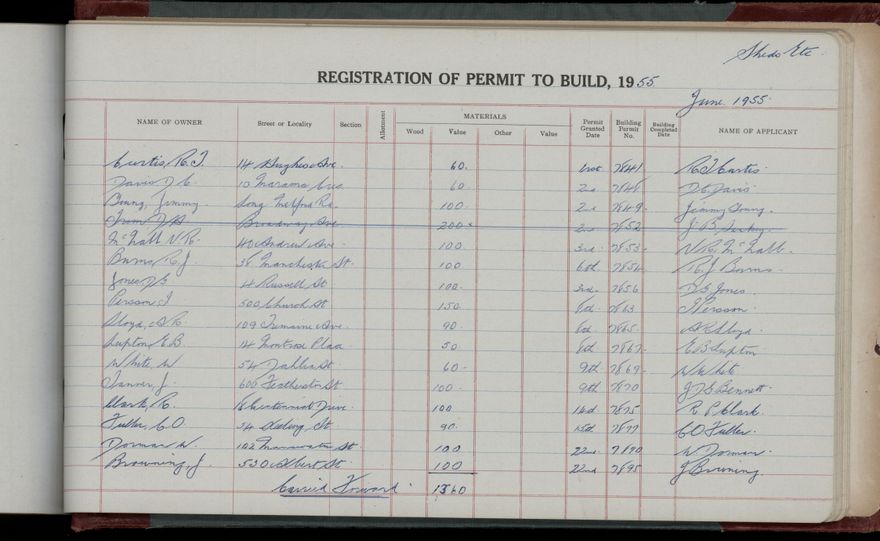 Sheds Etc
REGISTRATION OF PERMIT TO BUILD, 1955
June 1955
NAME OF OWNER Street or Locality Section Allotment MATERIALS Permit Granted Date Building Permit No. Building Completed Date NAME OF APPLICANT
Wood Value Other Value
Curtis, R. J. 14 Hughes Ave. 60. 1st 7841 R J Curtis
Davis D. E. 10 Marama Cres 60. 2nd 7848 D. E. Davis
Young, Jimmy Long Melford Rd. 100. 2nd 7849. Jimmy Young.
Broadway Ave 200 2nd 7852 J. B.
McNall N R. 40 Andrew Ave. 100. 3rd. 7853. N. R. McNall.
Burns R. J. 38 Manchester St. 100 6th 7854 R. J Burns
Jones D G 4 Russell St 100. 3rd. 7856 D. G Jones.
Persson J 500 Church St 150. 8th 7863 J Persson
Lloyd, A R. 109 Tremaine Ave. 90. 8th 7865 A R Lloyd.
Lupton, E B. 14 Montrose Place 50 8th 7867 E B Lupton
White, W 54 Dahlia St 60. 9th 7869 W White
Tanner, J. 600 Featherston St 100. 9th 7870 J D S Bennett.
Clark, R. Centennial Drive 100. 14th 7875 R P Clark.
Fuller, C O. 34 St. 90. 15th 7877 C O Fuller.
Dorman W 102 St 100 22nd 7890 W Dorman.
Browning, J. 530 Albert St 100 22nd 7895 J Browning.
Carried Forward. 1360